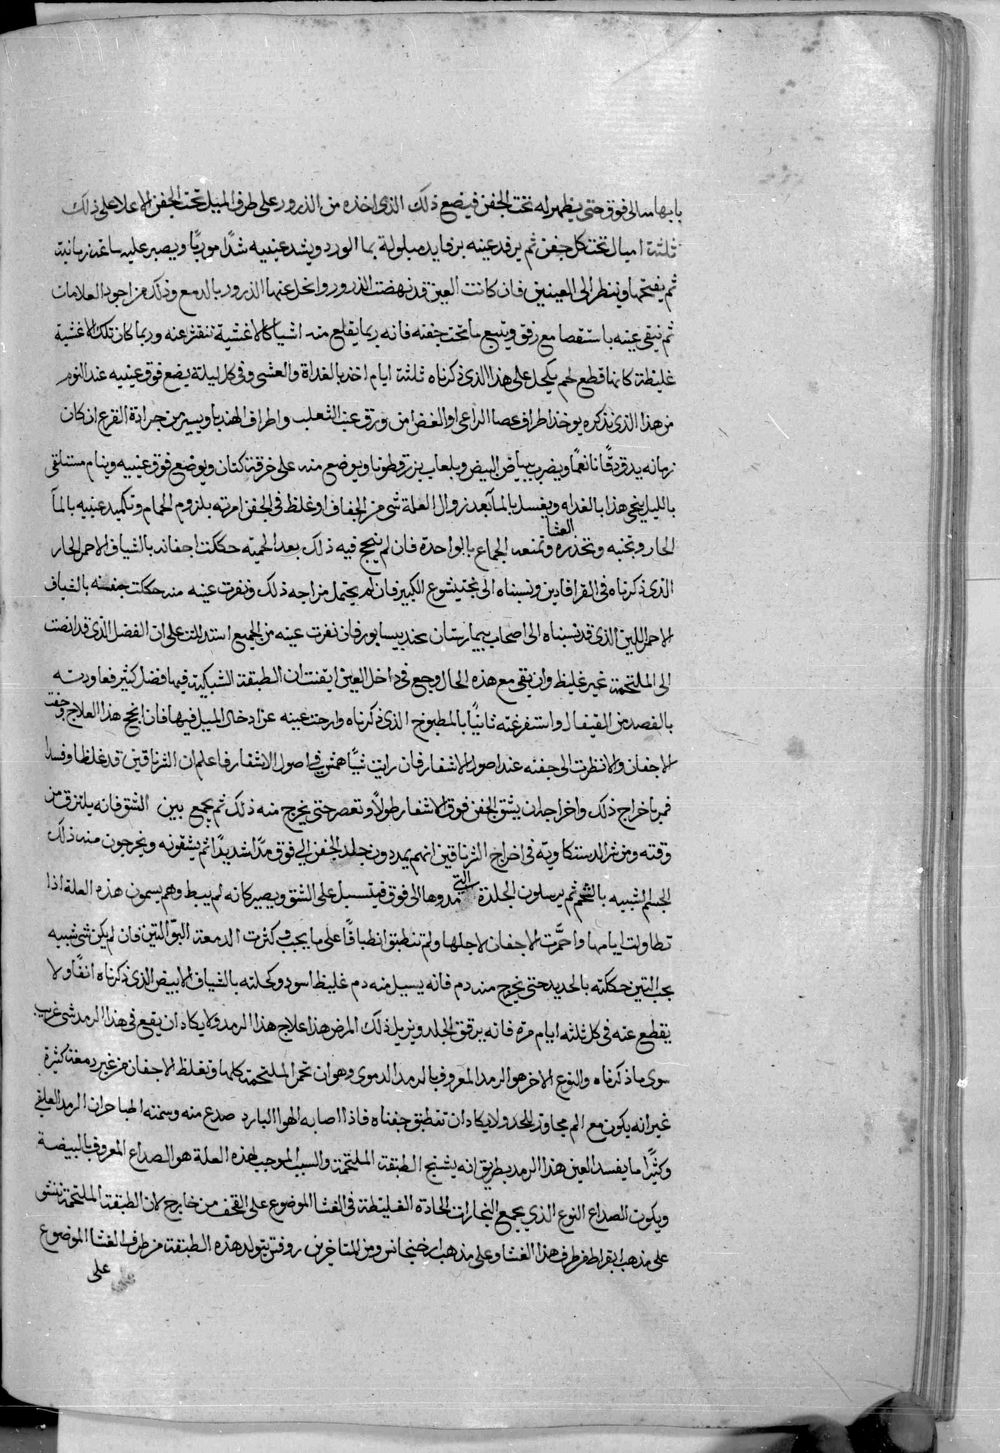 بابهامه الى فوق حتى يظهر له تحت الجفن فيضع ذلك الذى اخذه من الذرور على طرف الميل تحت الجفن الاعلا على ذلك
ثلثة اميال تحت كل جفن ثم يرفد عينه برفايد مبلولة بما الورد ويشد عينيه شدا موربا ويصبر عليه ساعة زمانية
ثم يفتحها وينظر الى العينين فان كانت العين قد نهضت الذرور وانحل عنها الذرور بالدمع وذلك من اجود العلامات
ثم نيقى عينه باستقصا مع رفق ويتبع ما تحت جفنه فانه ربما يقلع منه اشيا كالاغشية تتقشر عنه وربما كان تلك الاغشية
غليظة كانها قطع لحم يكحل على هذا الذى ذكرناه ثلثة ايام اخد بالغداة والعشى وفى كل ليلة يضع فوق عينيه عند النوم
من هذا الذى نذكره يوخذ اطراف عصا الراعى او الغض من ورق عنب الثعلب واطراف الهندبا ويسير من جرادة القرع ان كان
زمانه يدق دقا ناعما ويضرب ببياض البيض وبلعاب بزرقطونا ويوضع منه على خرقة كتان ويوضع فوق عينيه وينام مستلقى
بالليل ينحى هذا بالغداه ويغسل بالمآ بعد زوال العلة شى من الجفاف او غلظ فى الجفن امرته بلزوم الحمام وتكميد عينيه بالمآ
الحار وتجنبه وتحذره العشا وتمنعه الجماع بالواحدة فان لم ينجح فيه ذلك بعد الحمية حككت اجفانه بالشياف الاحمر الحار
الذى ذكرناه فى القرافادين ونسبناه الى بختيشوع الكبير فان لم يحتمل مزاجه ذلك ونفرت عينه منه حككت جفنه بالشياف
الاحمر اللين الذى قد نسبناه الى اصحاب بيمارستان بجنديسابور فان نفرت عينه من الجميع استدللت على ان الفضل الذى قد انصب
الى الملتحمة غير غليظ وان بقى مع هذه الحال وجع فى داخل العين ايقنت ان الطبقة الشبكية فيها فضل كثير فعاودته
بالفصد من القيفال واستفرغته ثانيا بالمطبوخ الذى ذكرناه وارحت عينه عن ادخال الميل فيها فان انجح هذا العلاج وخفت
الاجفان والا نظرت الى جفنه عند اصول الاشفار فان رايت شيا فى اصول الاشفار فاعلم ان الثرناقين قد غلظا وفسدا
فمر باخراج ذلك واخراجه ان يشق الجفن فوق الاشفار طولا وتعصر حتى يخرج منه ذلك ثم يجمع بين الشق فانه يلتزق من
وقته ومن الدستكاوية فى اخراج الثرناقين انهم يمددون جلد الجفن الى فوق مدا شديدا ثم يشقونه ويخرجون منه ذلك
الجسم الشبيه بالشحم ثم يرسلون الجلدة التى مدوها الى فوق فيتسبل على الشق ويصير كانه لم يبط وهم يسمون هذه العلة اذا
تطاولت ايامها واحمرت الاجفان لاجلها ولم تنطبق انطباقا على ما يجب وكثرت الدمعة البوالتين فان لم يكن شى شبيه
بحب التين حككته بالحديد حتى يخرج منه دم فانه يسيل منه دم غليظ اسود وكحلته بالشياف الابيض الذى ذكرناه انفا ولا
يقطع عنه فى كل ثلثه ايام مرة فانه يرقق الجلد ويزيل ذلك المرض هذا علاج هذا الرمد ولا يكاد ان يقع فى هذا الرمد شى غريب
سوى ما ذكرناه والنوع الاخر هو الرمد المعروف بالرمد الدموى وهو ان تحمر الملتحمة كلها وتغلظ الاجفان من غير دمعة كثيرة
غير انه يكون مع الم مجاوز للحد ولا يكاد ان تنطبق جفناه فاذا اصابه الهوا البارد صدع منه وسمته الطباخ ان الرمد العلفى
وكثيرا ما يفسد العين هذا الرمد بطريق انه يشنج الطبقة الملتحمة والسبب الموجب لهذه العلة هو الصداع المعروف بالبيضة
ويكون الصداع النوع الذى يجمع البخارات الحادة الغليظة فى الغشا الموضوع على القحف من خارج لان الطبقة الملتحمة تنشو
على مذهب ابقراط من طرف هذا الغشا وعلى مذهب ارخيجانس ومن المتاخرين روفس يتولد هذه الطبقة من طرف الغشا الموضوع
على